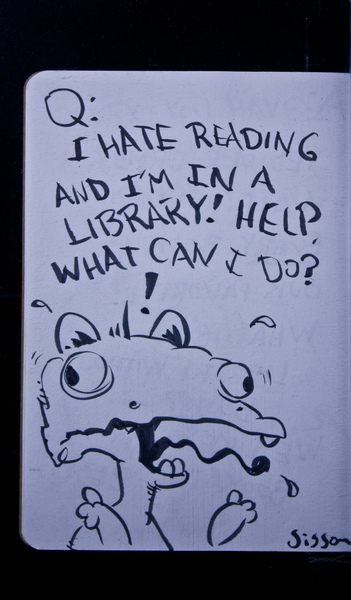 Q:
I HATE READING
AND I'M IN A
LIBRARY! HELP
WHAT CAN I DO?
!
Sisson